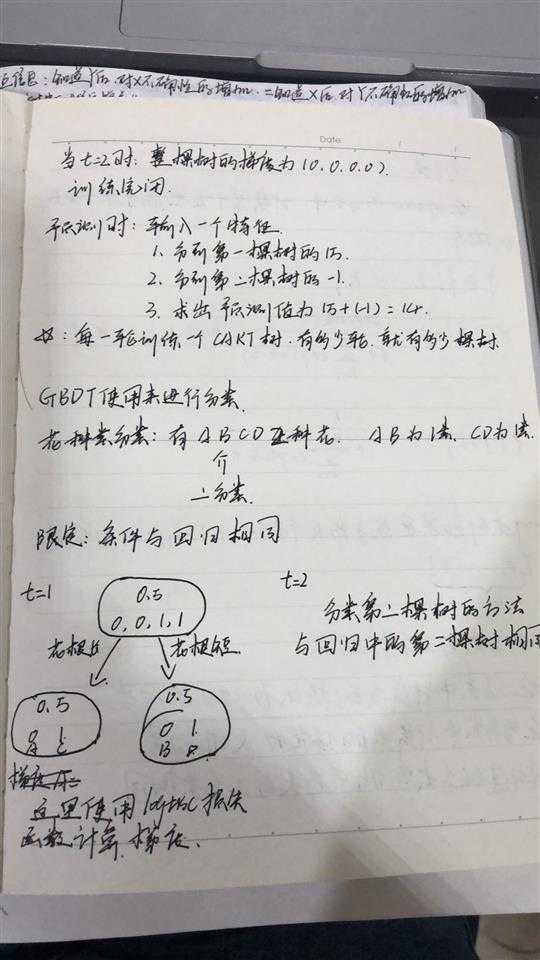 互信息：知道Y后，对X不确性的增加．＝知道X后对Y不确性的增加
Date
当t=2时：整棵树的梯度为(0.0.0.0).
训练完闭.
预测时：输入一个特征.
1. 分到第一棵树的15.
2. 分到第二棵树的-1.
3. 求出预测值为15+(-1)=14.
每一轮训练一个CART树．有多少轮．就有多少棵树.
GBDT使用来进行分类.
花种类分类：有ABCD 种花. AB为1类、CD为1类.
二分类.
限定：条件与回归相同
t=1
0.5
0,0,1,1
花粗长
花粗短
t=2
分类第二棵树的方法
与回归中的第二棵树相同
0.5
0 1
A C
0.5
0 1
B D
梯度A=
这里使用logistic损失
函数计算.梯度.